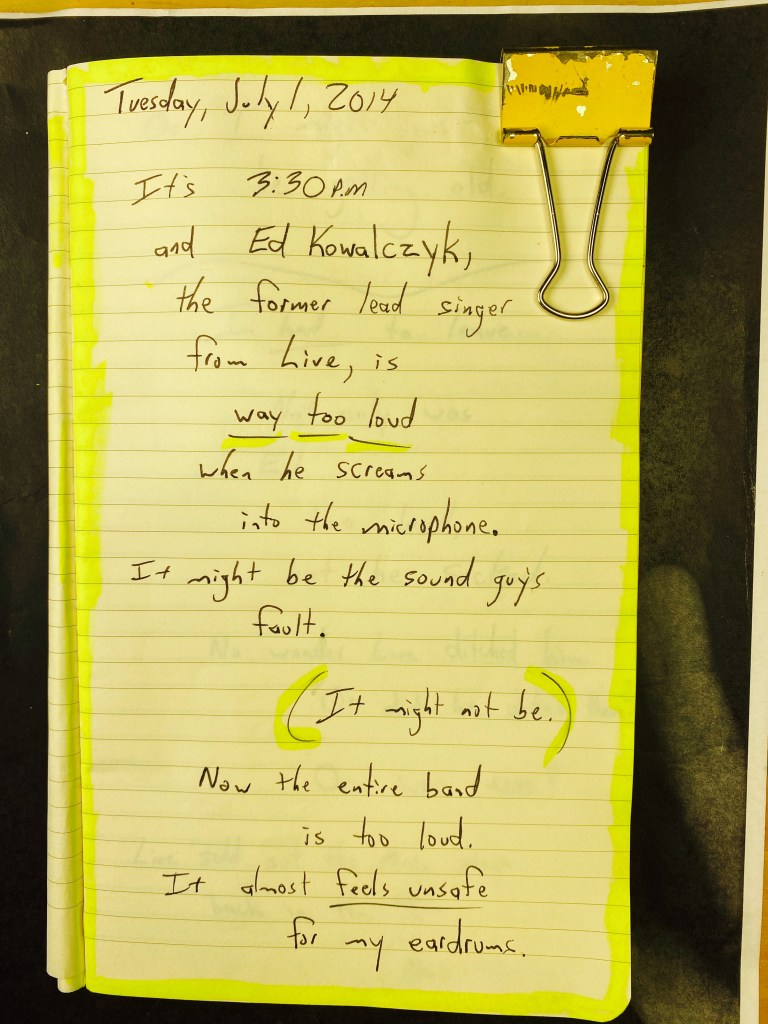 Tuesday, July 1, 2014
It's 3:30 P.M
and Ed Kowalczyk,
the former lead singer
from Live, is
way too loud
when he screams
into the microphone.
It might be the sound guy's
fault.
(It might not be.)
Now the entire band
is too loud.
It almost feels unsafe
for my eardrums.